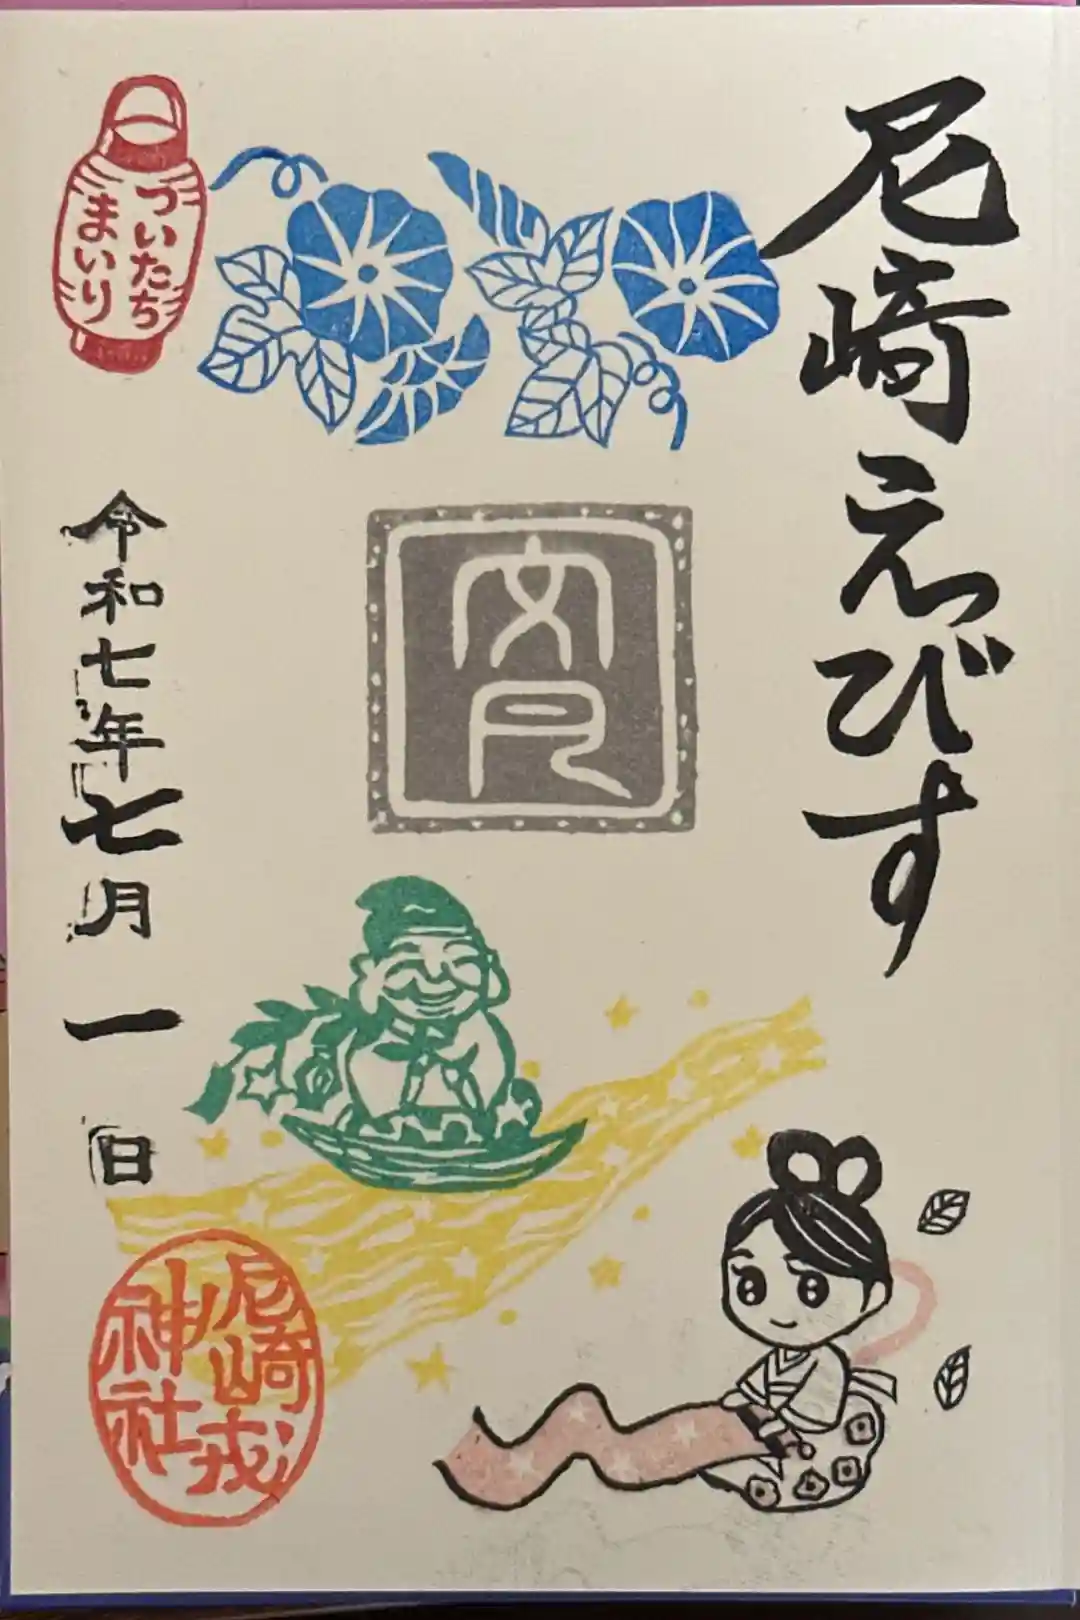 尼崎えびす
文月
ついたち
まいり
令和七年七月一日
尼崎戎
神社